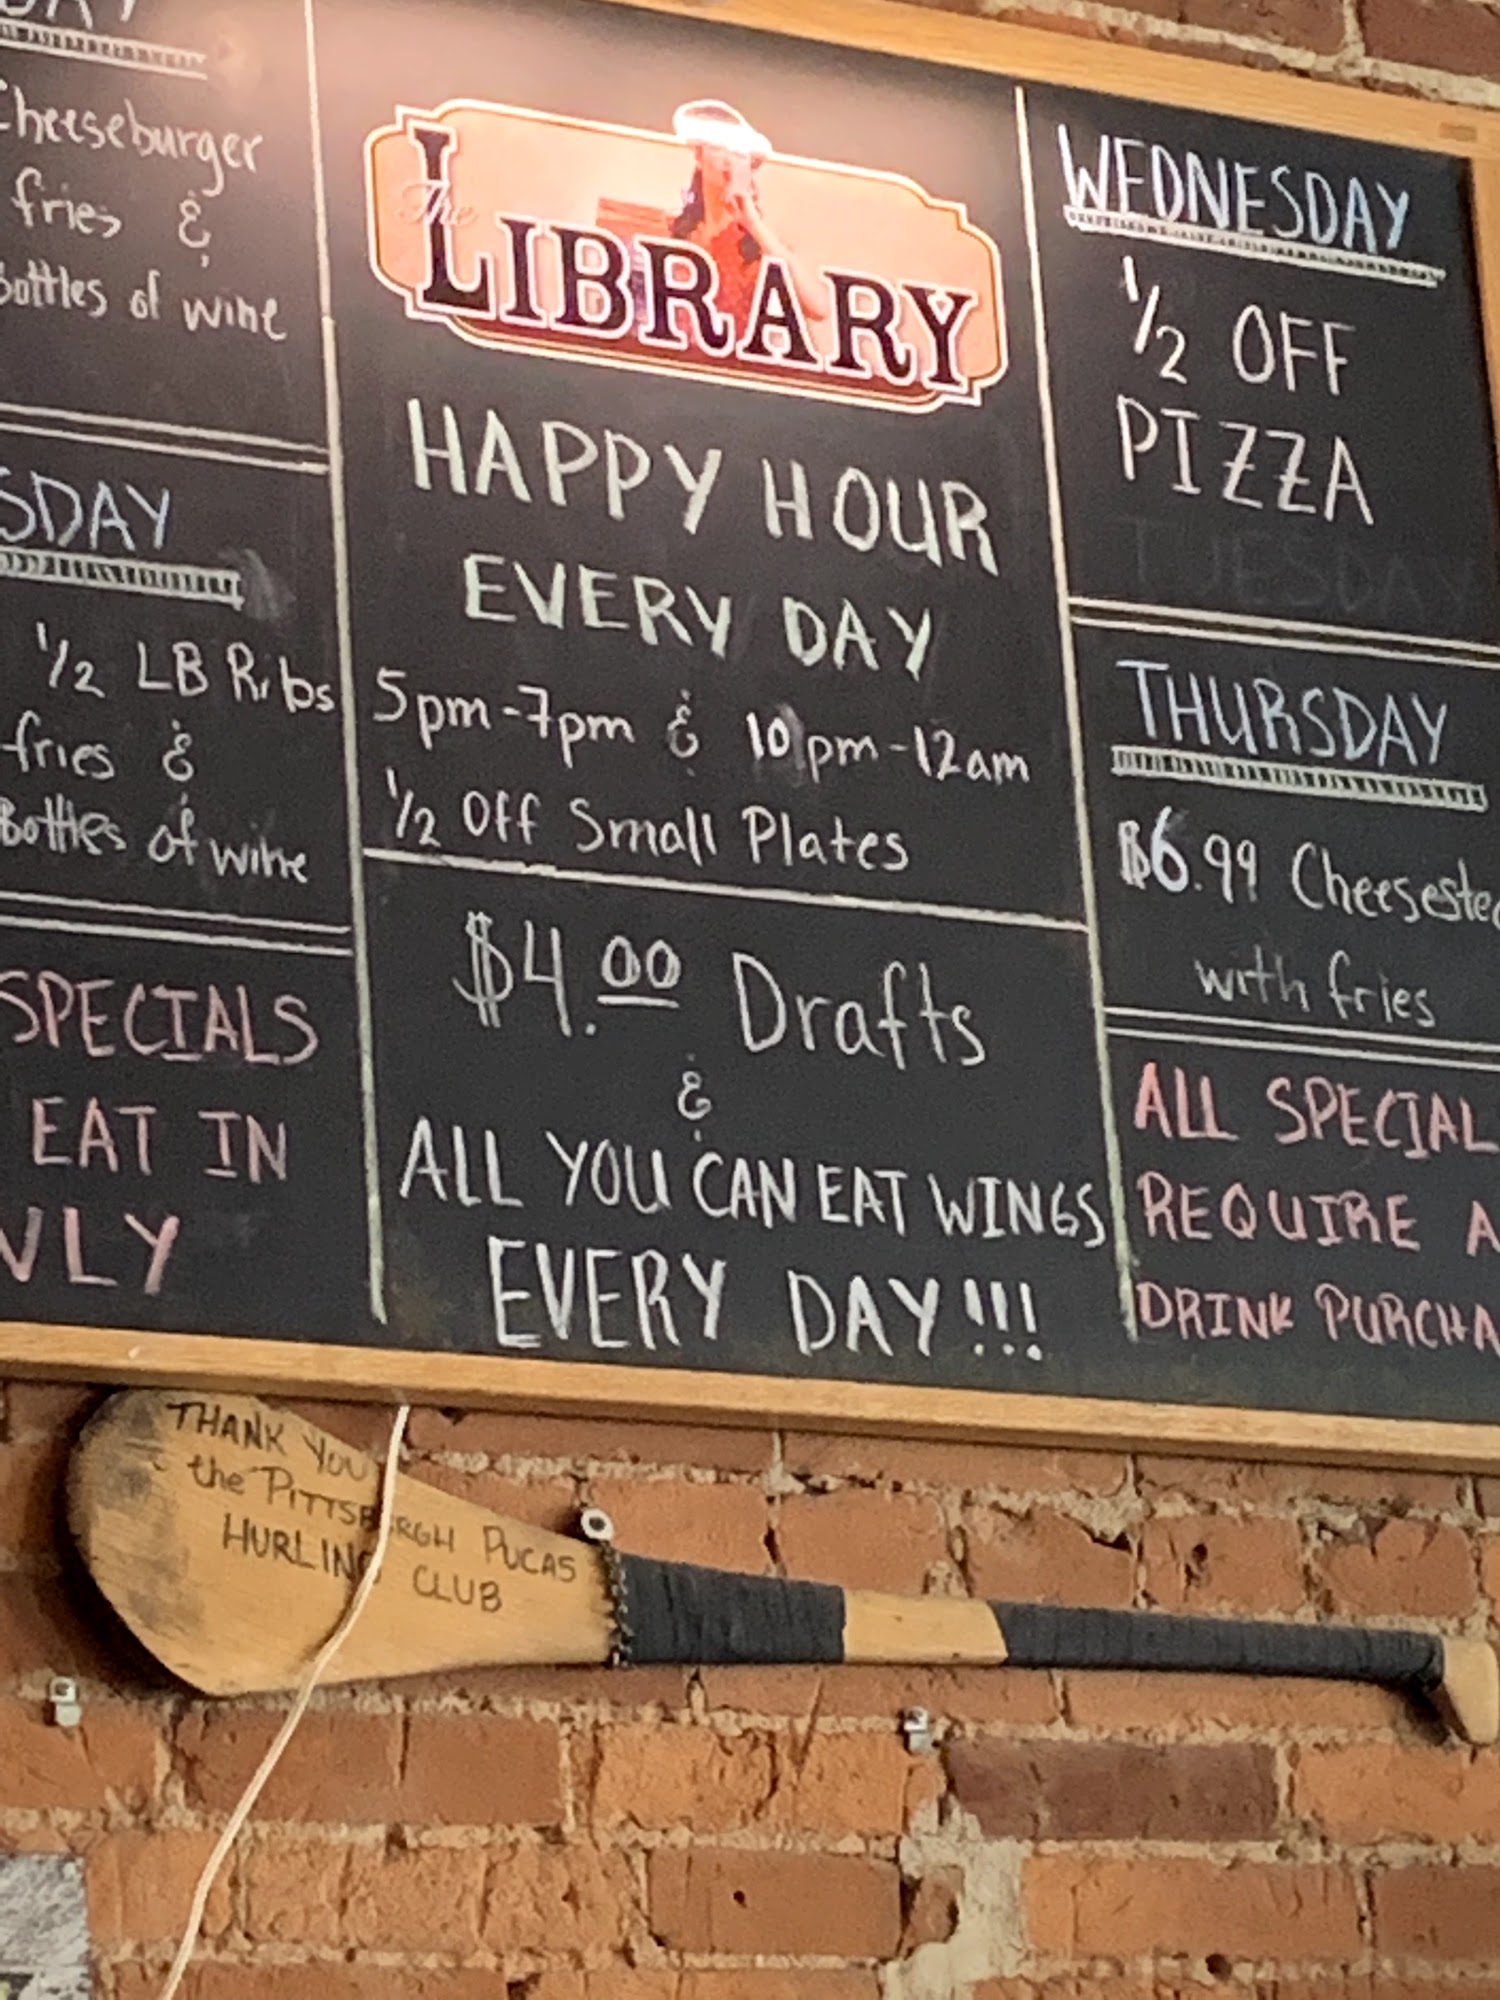 Cheeseburger
fries &
Bottles of wine
SDAY
1/2 LB Ribs
fries &
Bottles of wine
SPECIALS
EAT IN
NLY
The
LIBRARY
HAPPY HOUR
EVERY DAY
5pm-7pm & 10pm-12am
1/2 Off Small Plates
$4.00 Drafts
&
ALL YOU CAN EAT WINGS
EVERY DAY!!!
WEDNESDAY
1/2 OFF
PIZZA
TUESDAY
THURSDAY
$6.99 Cheeseste
with fries
ALL SPECIAL
REQUIRE A
DRINK PURCHA
THANK YOU
the PITTSBURGH PUCAS
HURLING CLUB